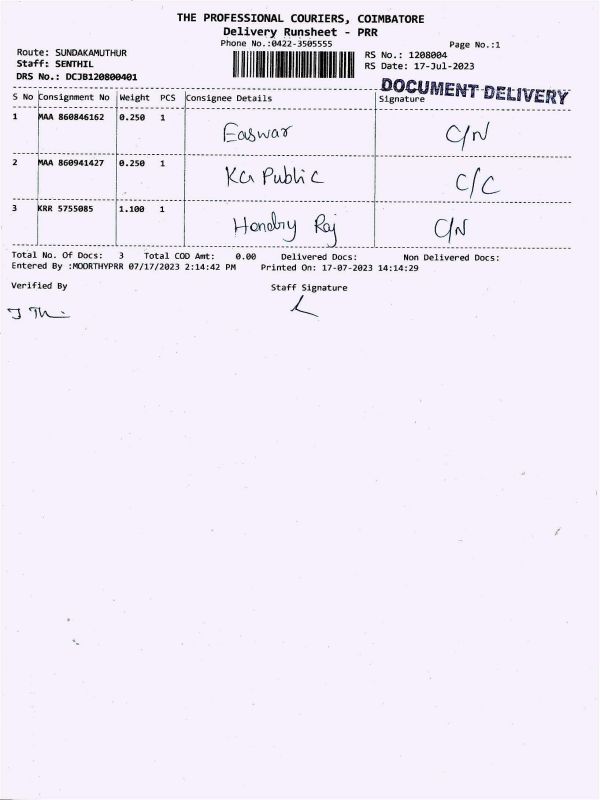 THE PROFESSIONAL COURIERS, COIMBATORE
Delivery Runsheet - PRR
Phone No.:0422-3505555 Page No.:1
Route: SUNDAKAMUTHUR RS No.: 1208004
Staff: SENTHIL RS Date: 17-Jul-2023
DRS No.: DCJB120800401 DOCUMENT DELIVERY
S No Consignment No Weight PCS Consignee Details Signature
1 MAA 860846162 0.250 1 Easwar C/N
2 MAA 860941427 0.250 1 KG Public C/C
3 KRR 5755085 1.100 1 Raj C/N
Total No. Of Docs: 3 Total COD Amt: 0.00 Delivered Docs: Non Delivered Docs:
Entered By :MOORTHYPRR 07/17/2023 2:14:42 PM Printed On: 17-07-2023 14:14:29
Verified By Staff Signature